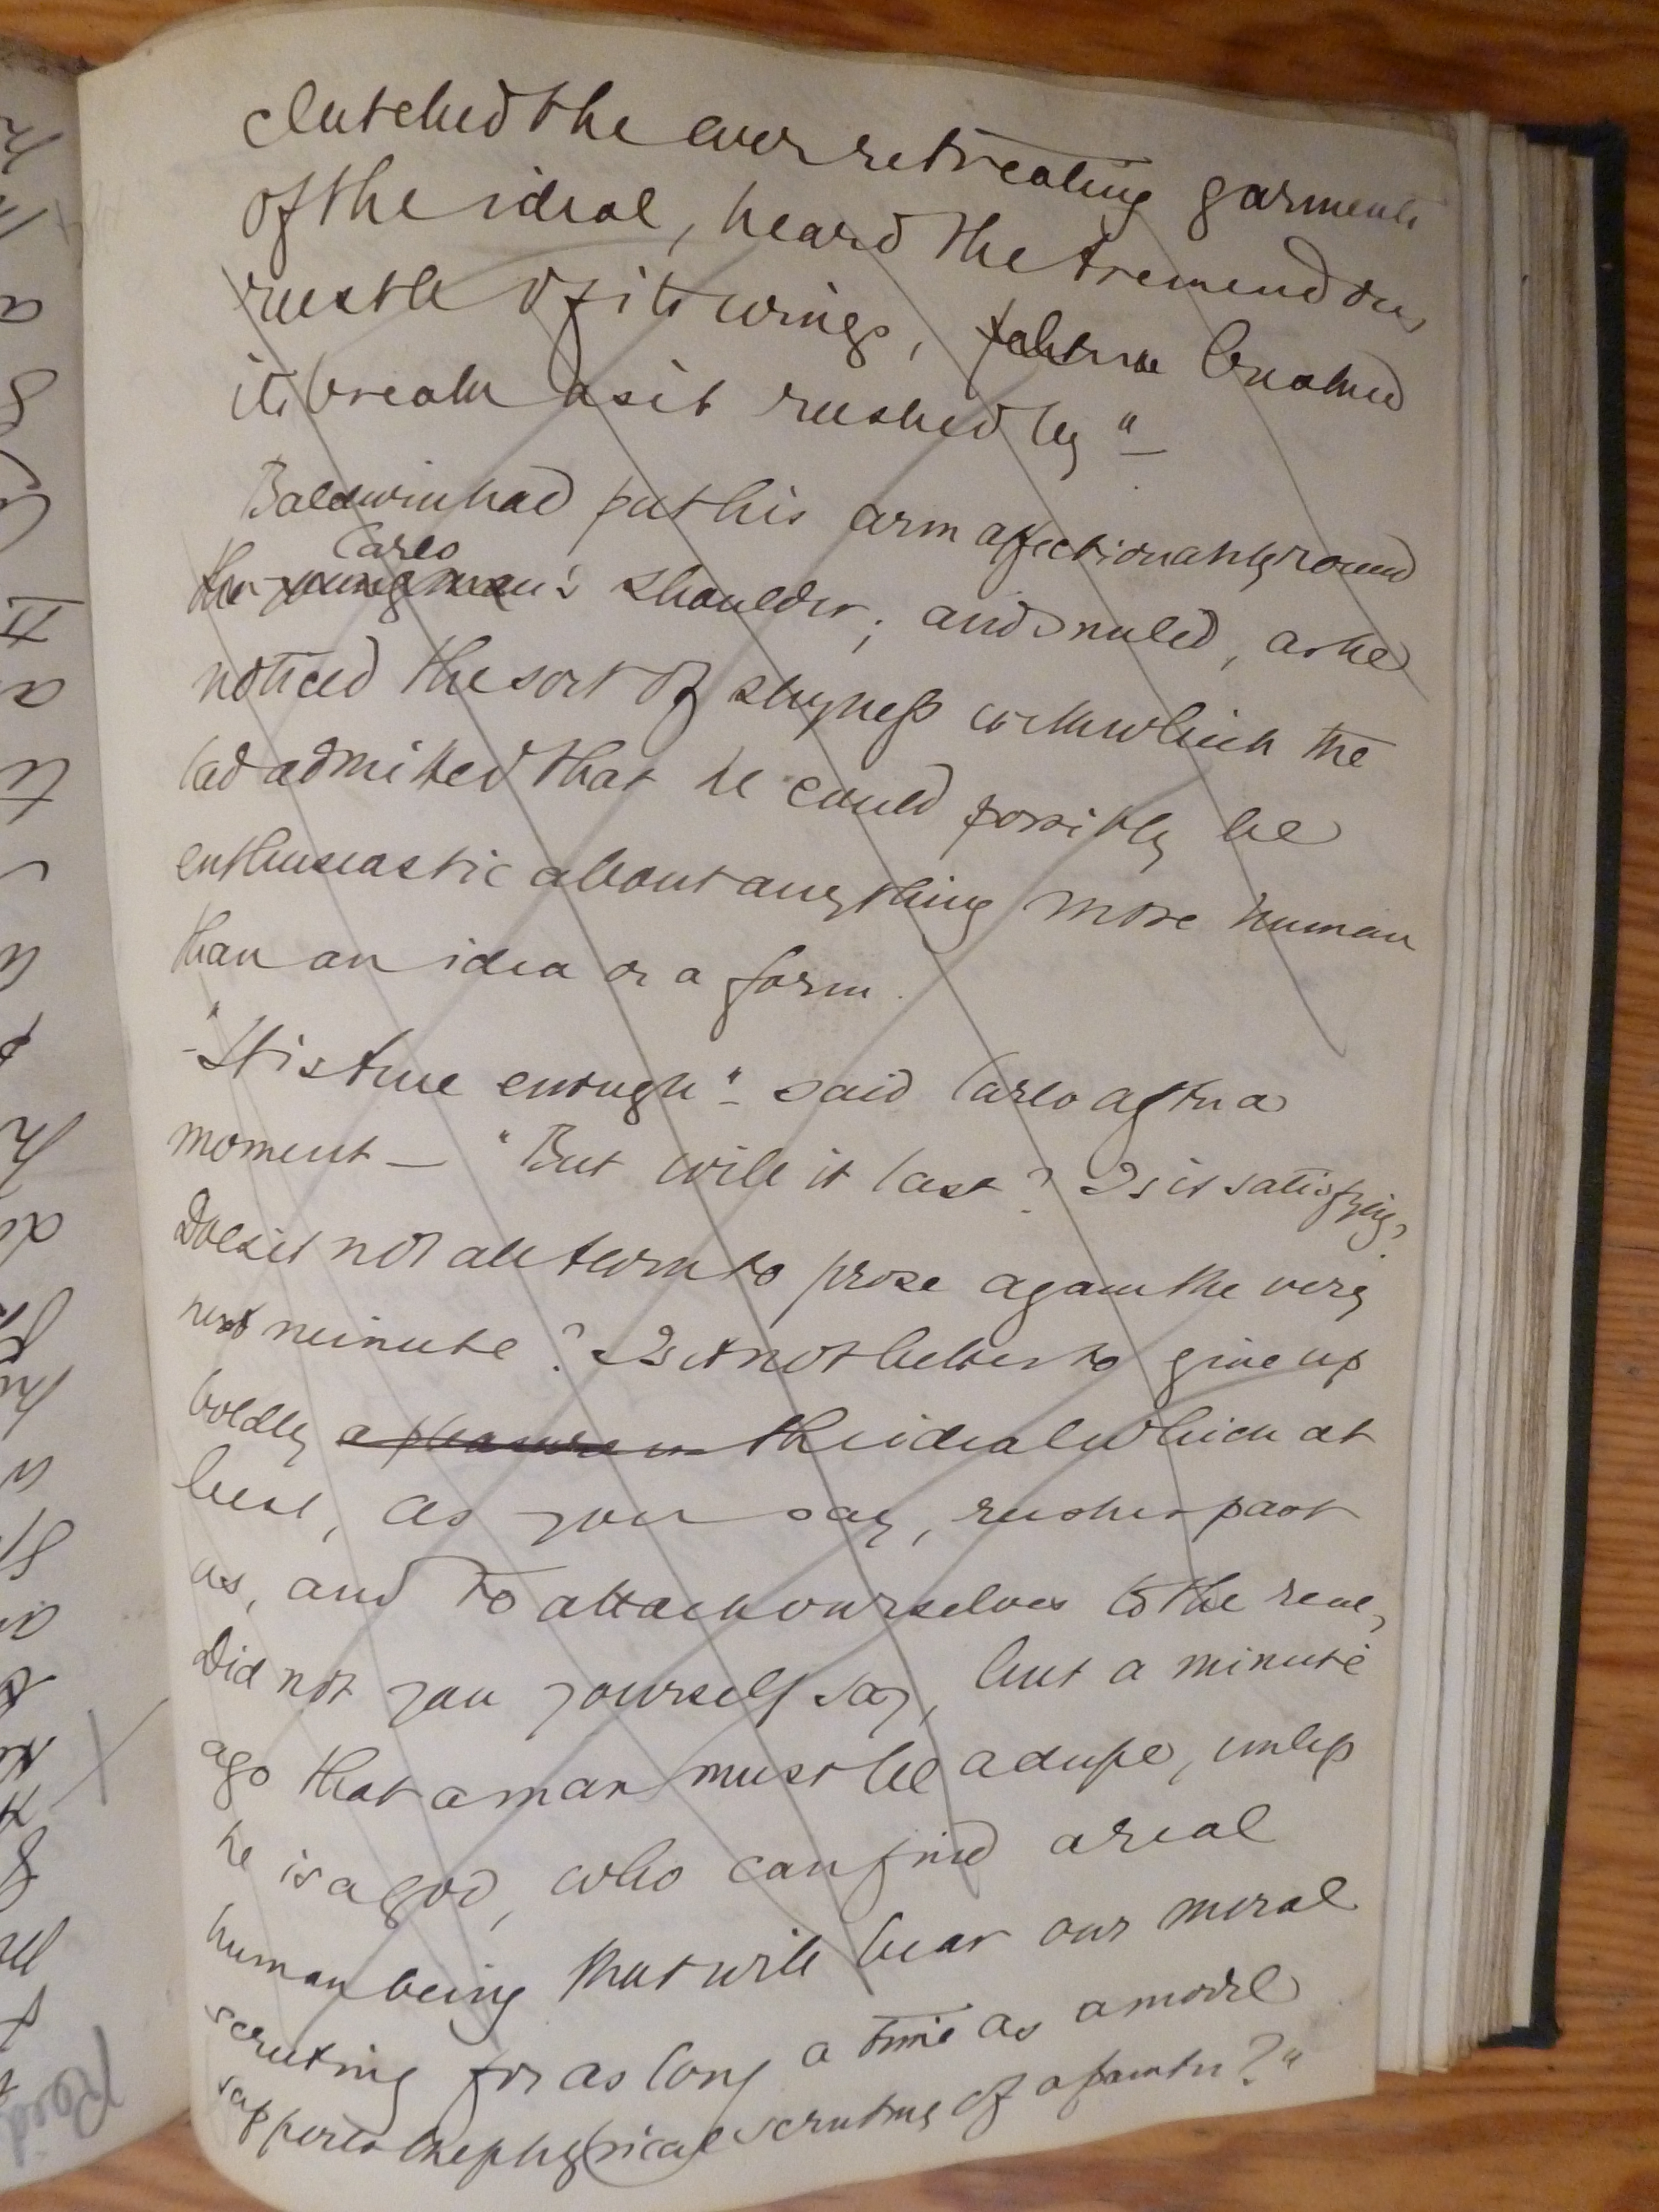 clutched the ever retreating garments
of the ideal, heard the tremendous
rustle of its wings, felt the breathed
its breath as it rushed by" –
Baldwin had put his arm affectionately round
Carlo
the young man's shoulder; and smiled, as he
noticed the sort of shyness with which the
lad admitted that he could possibly be
enthusiastic about anything more human
than an idea or a form.
– "It is true enough" – said Carlo after a
moment – "But will it last? Is it satisfying?
Does it not all turn to prose again the very
next minute? Is it not better to give up
boldly the ideal which at
best, as you say, rushes past
us, and to attach ourselves to the real,
Did not you yourself say, but a minute
ago that a man must be a dupe, unless
he is a god, who can find a real
human being that will bear our moral
scrutiny for as long a time as a model
supports the physical scrutiny of a painter?"